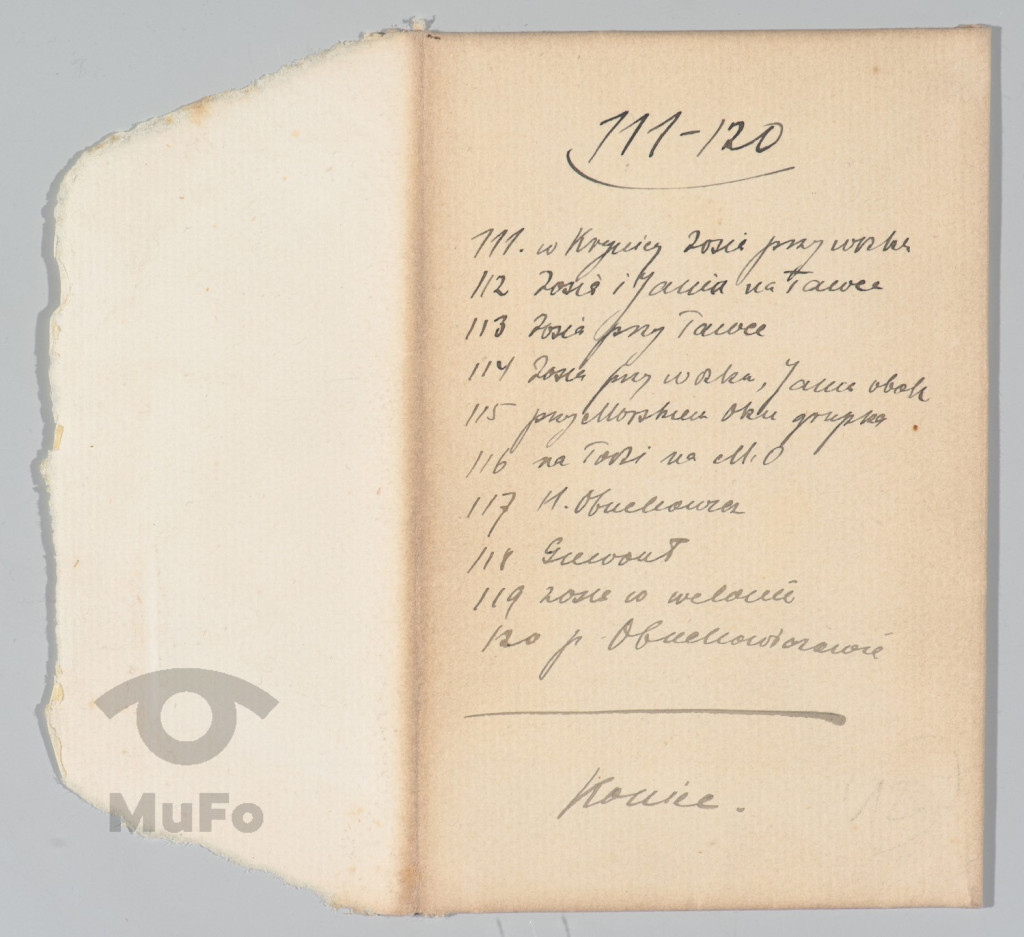 111-120
111. w Krynicy Zosia przy wózku
112 Zosia i Jania na ławce
113 Zosia przy ławce
114 Zosia przy wózku, Jania obok
115 przy Morskiem Oku grupka
116 na łodzi na M.O
117 H. Obuchowicz
118 Giewont
119 Zosia w welonie
120 p. Obuchowiczowie
Koniec.
MuFo